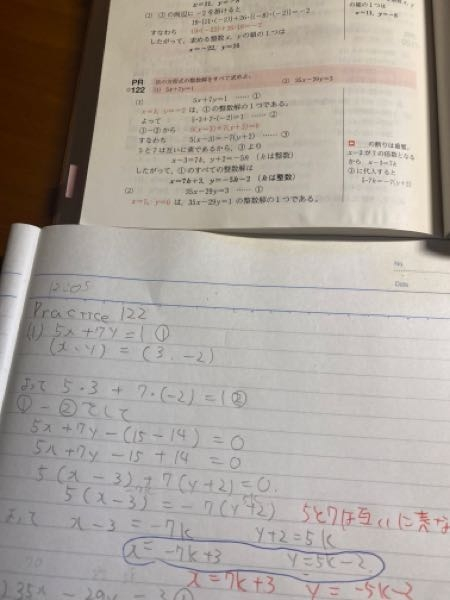 (2) ①の両辺に−2を掛けると
すなわち
したがって、求める整数x, yの組の1つは
x=−22, y=16
PR
122
次の方程式の整数解をすべて求めよ。
(1) 5x+7y=1 (2) 35x−29y=3
(1) 5x+7y=1 …… ①
x=3, y=−2 は、①の整数解の1つである。
よって 5・3+7・(−2)=1 …… ②
①−②から 5(x−3)+7(y+2)=0
すなわち 5(x−3)=−7(y+2) …… ③
5と7は互いに素であるから、③より
x−3=7k, y+2=−5k (kは整数)
したがって、①のすべての整数解は
x=7k+3, y=−5k−2 (kは整数)
(2) 35x−29y=3 …… ①
は、35x−29y=1の整数解の1つである。
の断りは重要。
x−3が7の倍数となる
から、x−3=7k
③に代入すると
5・7k=−7(y+2)
No.
Date
12:05
Practice 122
(1) 5x+7y=1 ①
(x, y) = (3, −2)
よって 5・3 + 7・(−2) = 1 ②
① − ② をして
5x+7y −(15−14) = 0
5x+7y −15 + 14 = 0
5(x−3) + 7(y+2) = 0.
5(x−3) = −7(y+2)
5と7は互いに素な
よって x−3 = −7k y+2 = 5k
x = −7k+3 y = 5k−2
x = 7k+3 y = −5k−2
35x − 29y = 3 ①